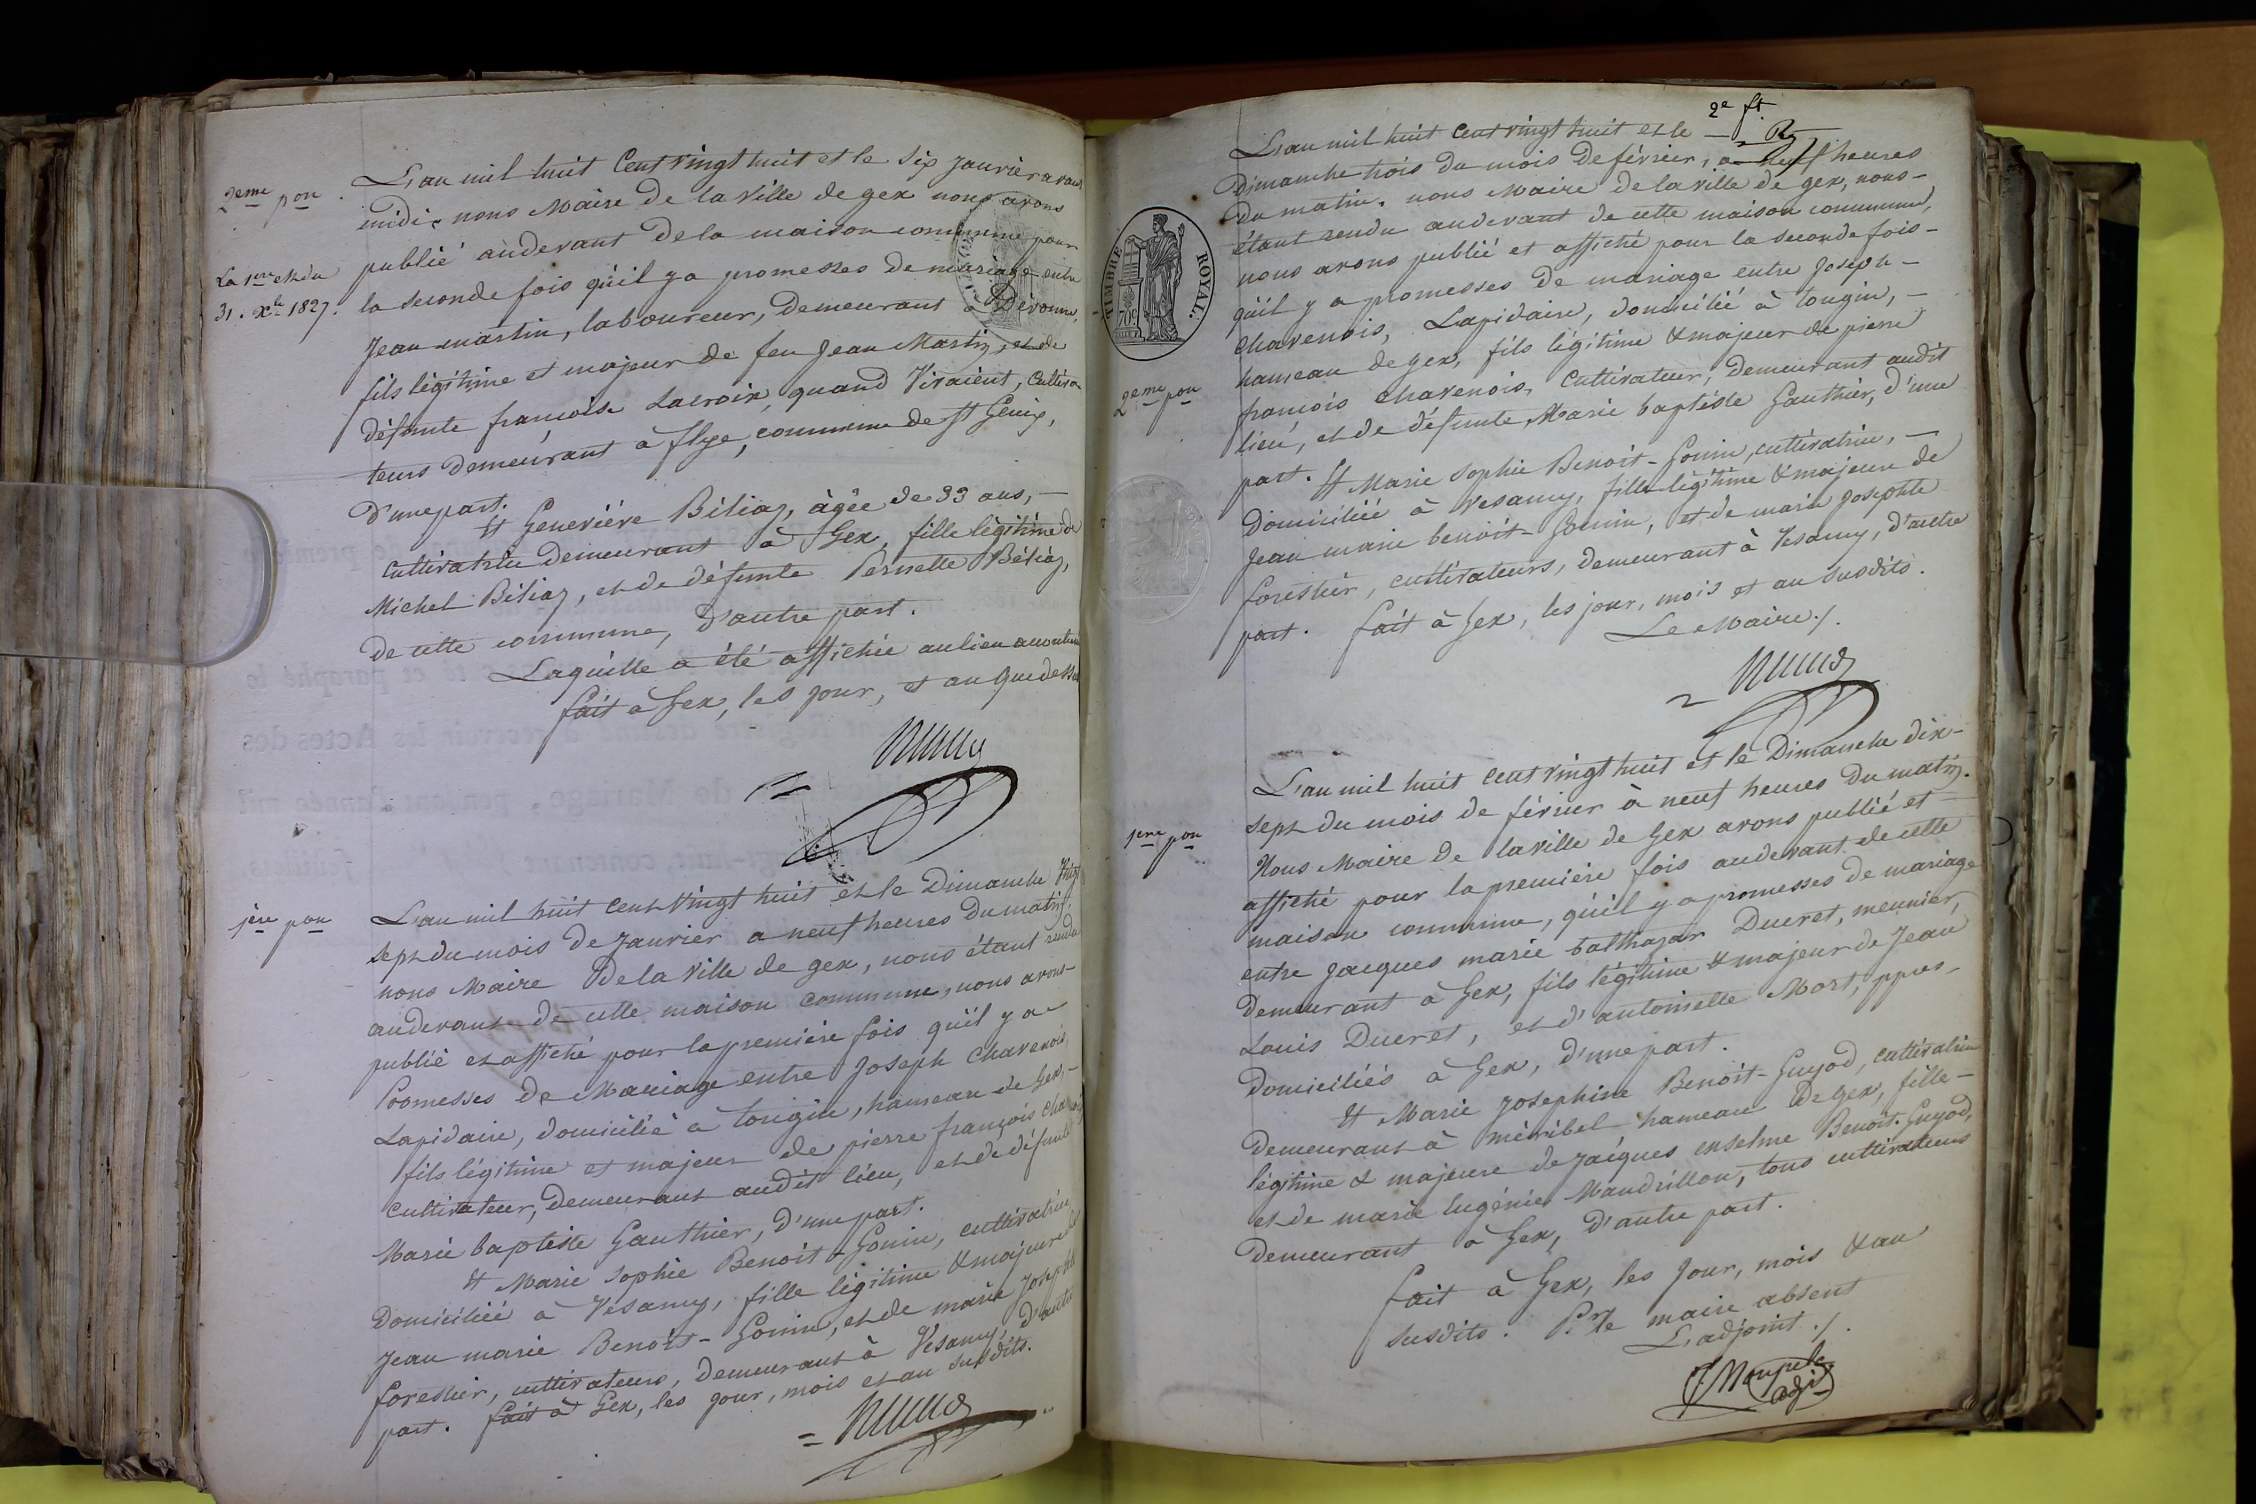 2eme pon
La 1ere est du
31. Xbre 1827.
L'an mil huit Cent vingt huit et le six Janvier avant
midi, nous Maire de la ville de gex nous avons
publié audevant de la maison commune pour
la seconde fois qu'il y a promesses de mariage entre
Jean martin, laboureur, demeurant à Divonne,
fils légitime et majeur de feu Jean Martin, et de
défunte françoise Lacroix, quand vivaient, cultiva
teurs demeurant à flye, commune de St Genix,
d'une part.
Et Geneviéve Béliaz, âgée de 33 ans,
cultivatrice demeurant à Gex, fille légitime de
Michel Béliaz, et de défunte Pernette Béliaz,
de cette commune, d'autre part.
Laquelle a été affichée au lieu accoutumé
fait à Gex, les jour, et an que dessus
1ere pon
L'an mil huit cent vingt huit et le Dimanche vingt
sept du mois de Janvier a neuf heures du matin,
nous Maire de la ville de gex, nous étant rendu
audevant de cette maison commune, nous avons
publié et affiché pour la premiére fois qu'il y a
Promesses de Mariage entre Joseph Chavenois,
Lapidaire, domicilié à tougin, hameau de Gex,
fils légitime et majeur de pierre françois
cultivateur, demeurant audit lieu, et de défunte
Marie baptiste Gauthier, d'une part.
Et Marie Sophie Benoit-Gonin, cultivatrice
Domiciliée à Vésancy, fille légitime & majeure de
Jean marie Benoit-Gonin, et de marie Josephte
forestier, cultivateurs, demeurant à Vésancy, d'autre
part. fait à Gex, les jour, mois et an susdits.
2e ft.
TIMBRE ROYAL.
70c
2eme pon
L'an mil huit cent vingt huit et le
Dimanche trois du mois de février, a neuf heures
du matin, nous Maire de la ville de gex, nous
étant rendu audevant de cette maison commune,
nous avons publié et affiché pour la seconde fois
qu'il y a promesses de mariage entre Joseph
Chavenois, Lapidaire, domicilié à tougin,
hameau de gex, fils légitime & majeur de pierre
françois Chavenois, cultivateur, demeurant audit
lieu, et de défunte Marie baptiste Gauthier, d'une
part. Et Marie Sophie Benoit-Gonin, cultivatrice,
Domiciliée à Vesancy, fille légitime & majeure de
Jean marie benoit-Gonin, et de marie Josephte
forestier, cultivateurs, demeurant à Vesancy, d'autre
part. fait à Gex, les jour, mois et an susdits.
Le Maire./.
1ere pon
L'an mil huit cent vingt huit et le Dimanche dix-
sept du mois de février à neuf heures du matin.
Nous Maire de la ville de Gex avons publié et
affiché pour la premiére fois audevant de cette
maison commune, qu'il y a promesses de mariage
entre Jacques marie balthazar Ducret, meunier,
demeurant à Gex, fils légitime & majeur de Jean
Louis Ducret, et d'antoinette Mort, ppres,
domiciliés à Gex, d'une part.
Et Marie Josephine Benoit-Guyod, cultivatrice
demeurant à méribel hameau de gex, fille
légitime & majeure de Jacques enselme Benoit-Guyod,
et de marie Eugénie Mandrillon, tous cultivateurs
demeurant à Gex, d'autre part.
fait à Gex, les jour, mois & an
susdits. Pr le maire absent
L'adjoint./.